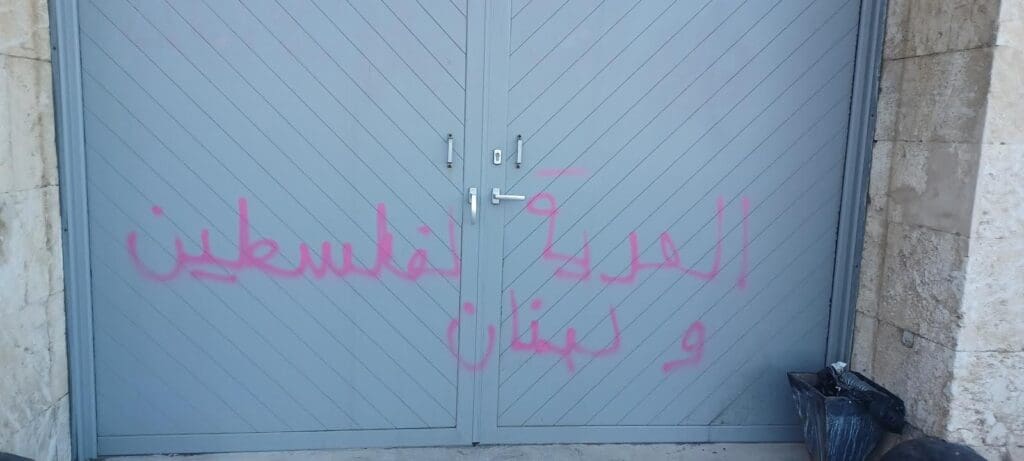 الحرية لفلسطين
و لبنان